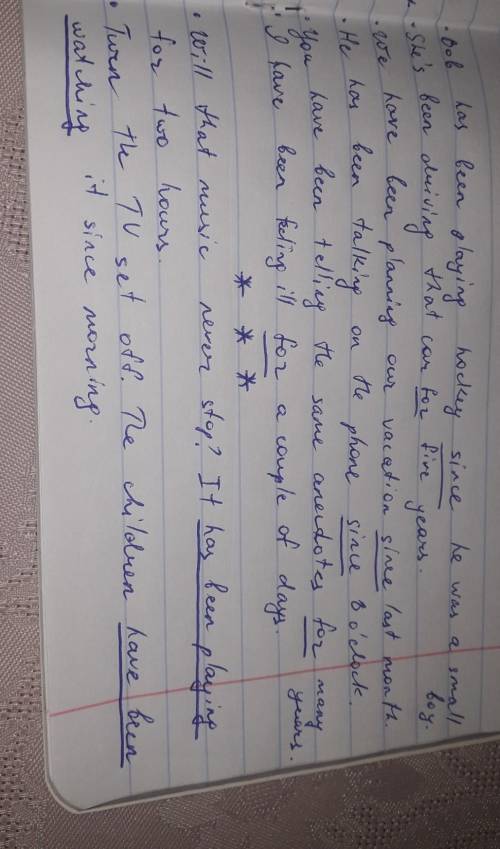 · Bob has been playing hockey since he was a small
boy.
· She's been driving that car for five years.
· We have been planning our vacation since last month.
· He has been talking on the phone since 8 o'clock.
· You have been telling the same anecdotes for many
years.
· I have been feeling ill for a couple of days.
* * *
· Will that music never stop? It has been playing
for two hours.
· Turn the TV set off. The children have been
watching it since morning.